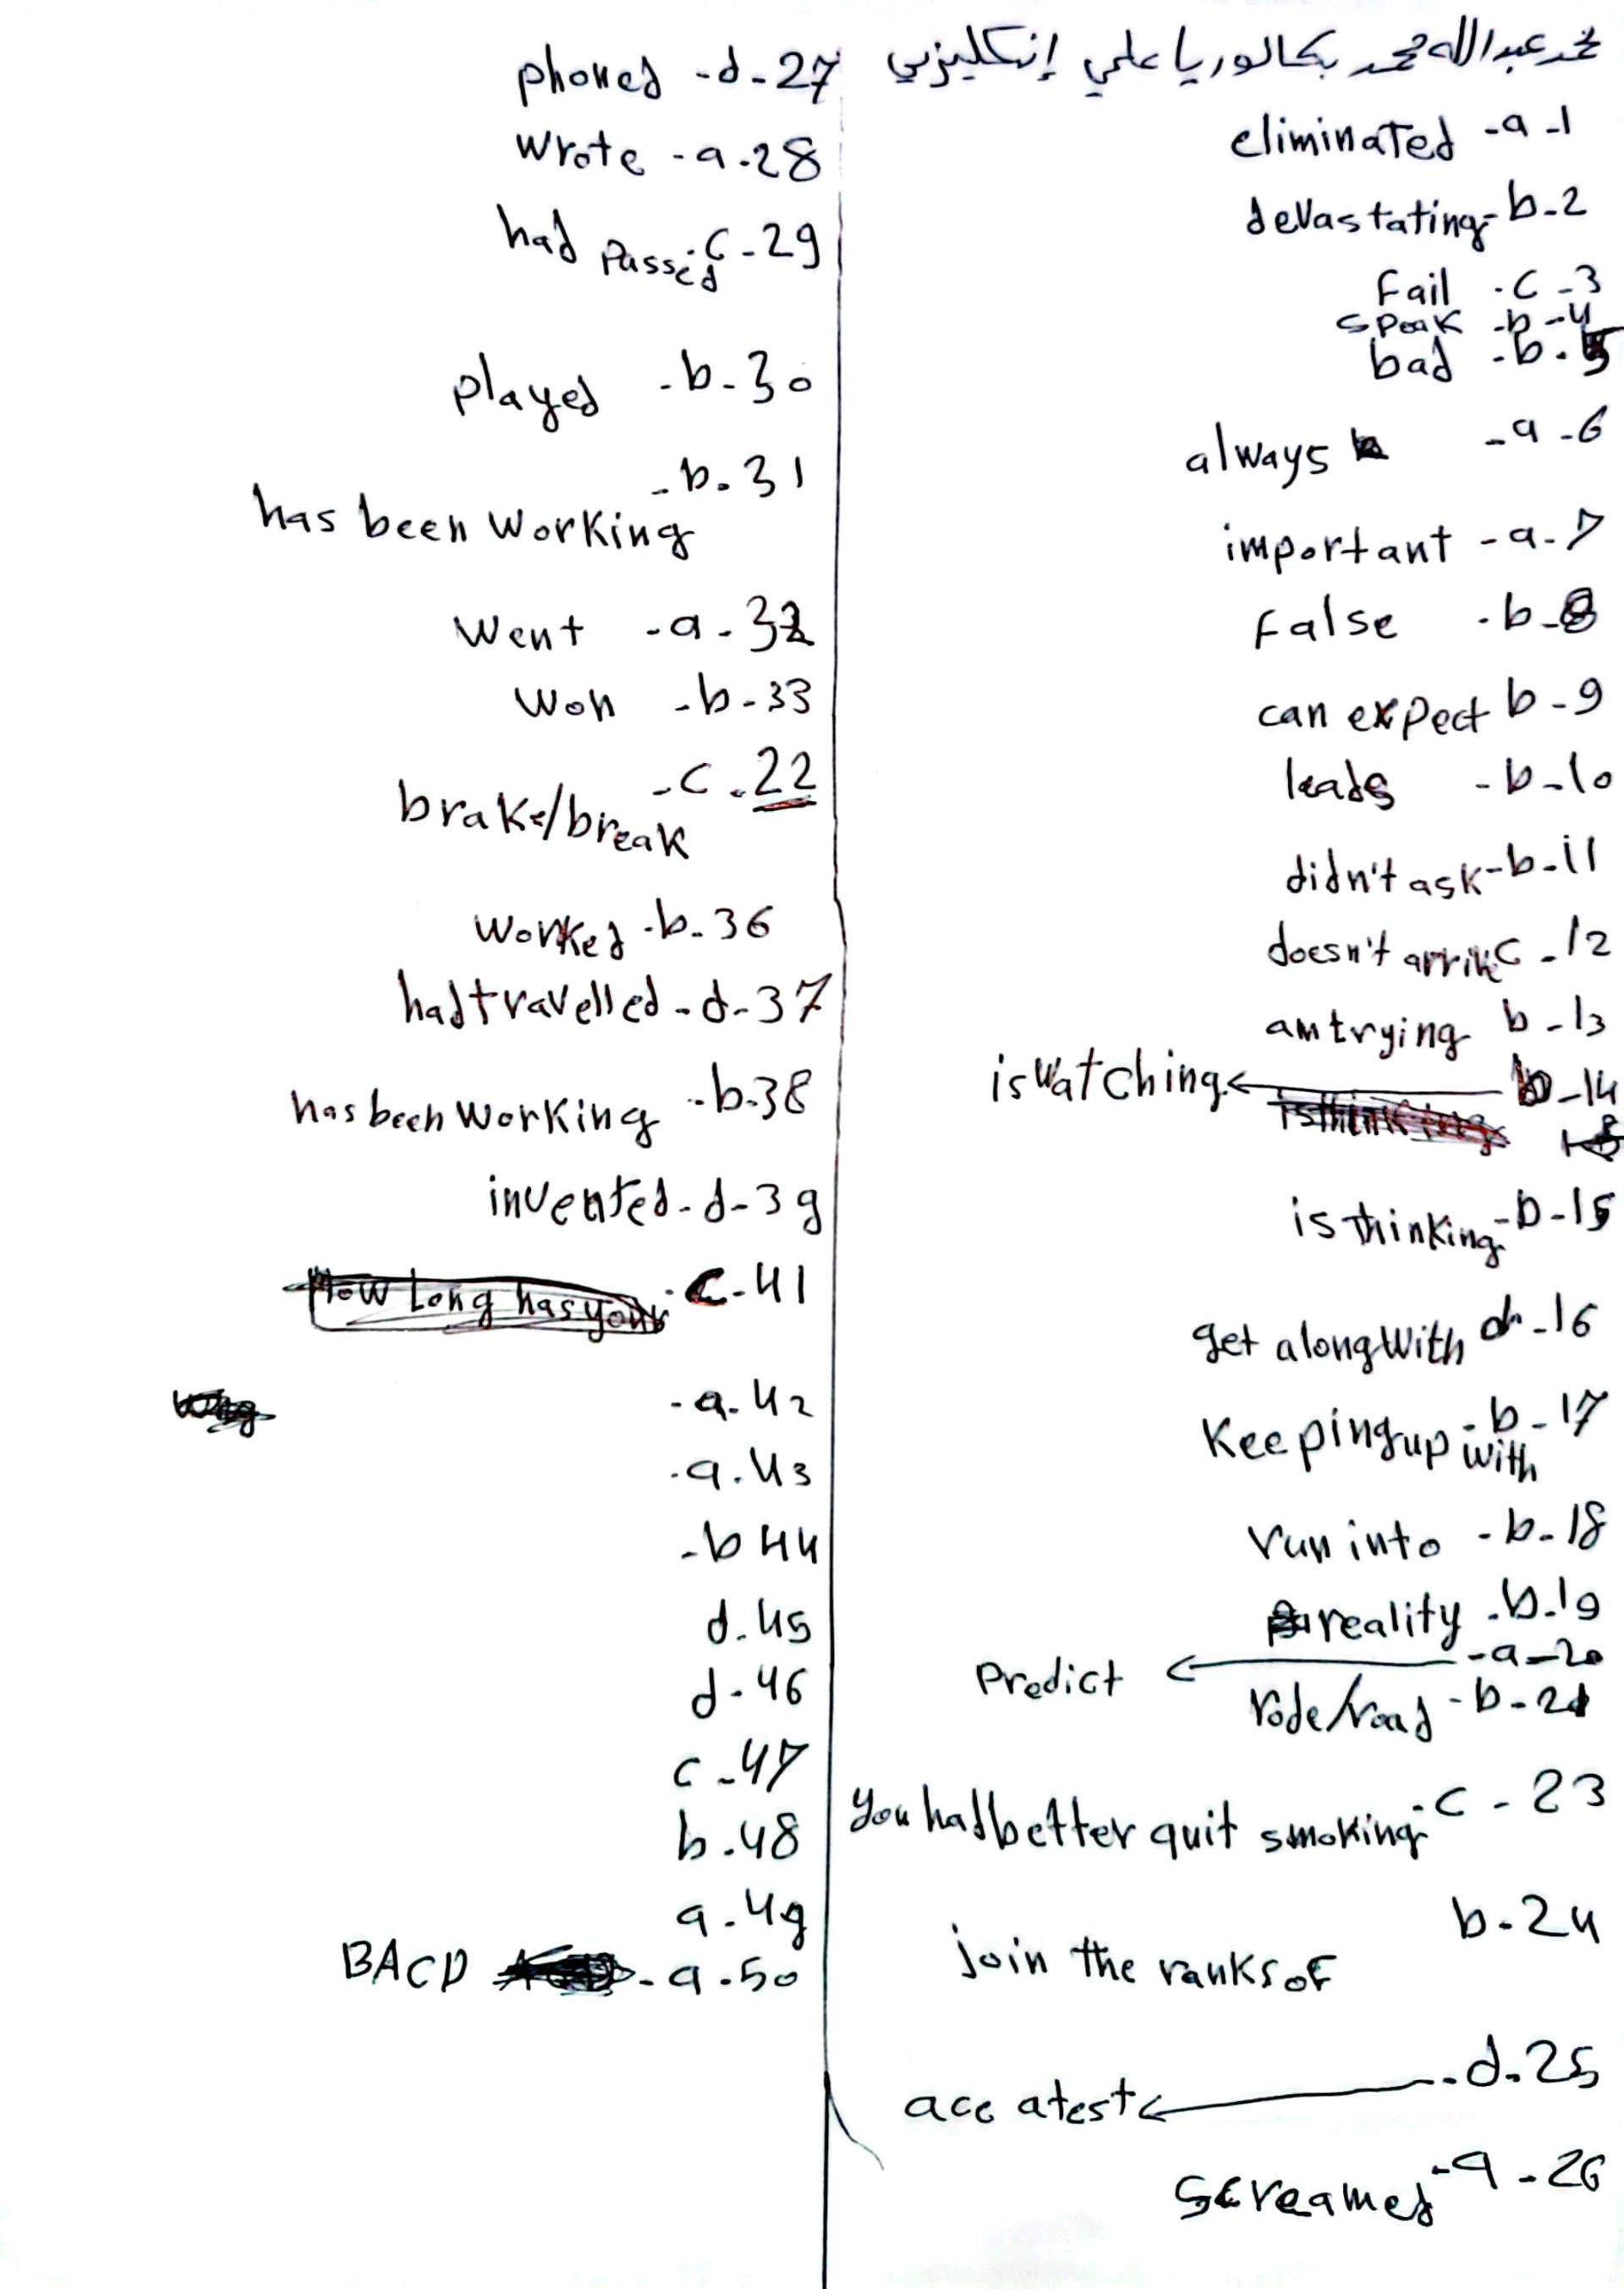 محمد عبدالله محمد بكالوريا علمي إنكليزي
eliminated -a -1
devastating- b-2
Fail .c -3
speak -b -4
bad -b. 5
always -a -6
important -a-7
False .b-8
can expect b-9
leads -b-10
didn't ask-b-11
doesn't arrive c-12
am trying b-13
is watching ← b-14
is thinking-b-15
get along with d-16
Keeping up with -b-17
run into -b-18
reality -b-19
Predict ← -a-20
rode/road -b-21
you had better quit smoking -c-23
b-24
join the ranks of
ace a test ← -d.25
screamed -a-26
phoned -d-27
wrote -a-28
had Passed .c-29
played -b-30
-b.31
has been working
went -a-32
won -b-33
-c.22
brake/break
worked -b-36
had travelled -d-37
has been working -b-38
invented-d-39
How Long has your .c-41
-a.42
.a.43
-b 44
d.45
d-46
c-47
b.48
a-49
BACD -a.50